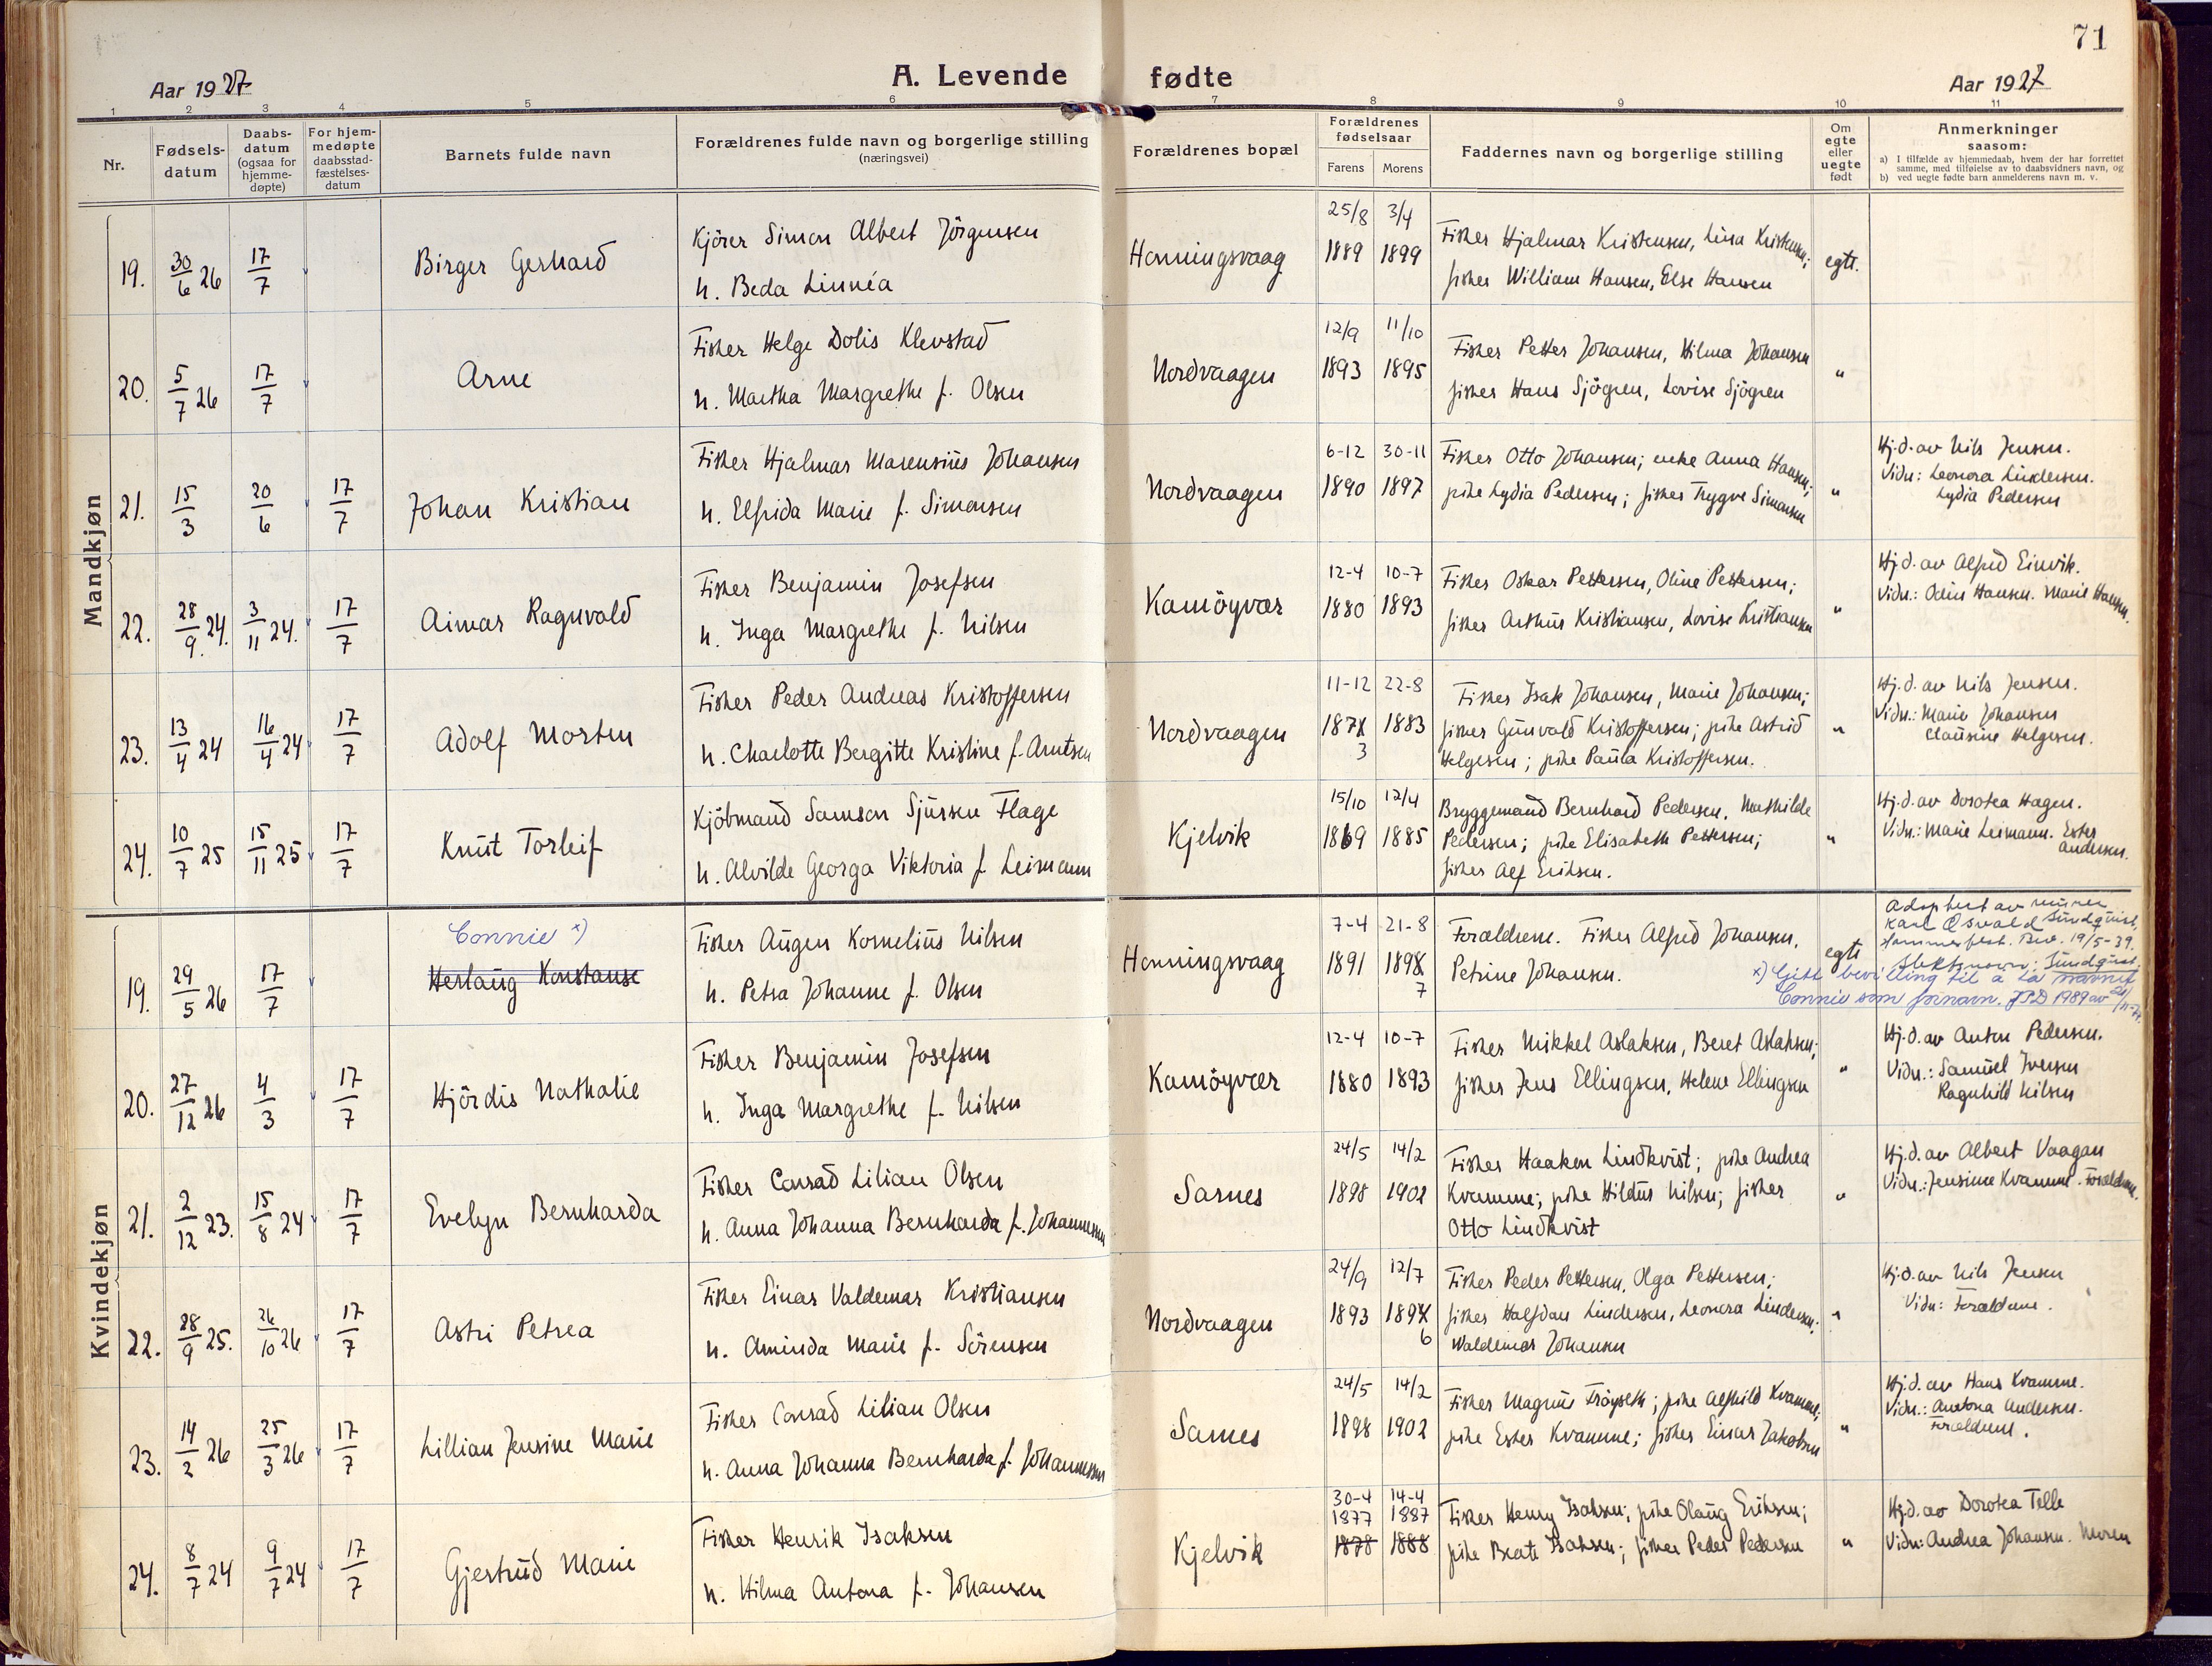 71
Aar 1927
A. Levende fødte
Aar 1927
1 2 3 4 5 6 7 8 9 10 11
Nr.
Fødsels-
datum
Daabs-
datum
(ogsaa for
hjemme-
døpte)
For hjem-
medøpte
daabsstad-
fæstelses-
datum
Barnets fulde navn
Forældrenes fulde navn og borgerlige stilling
(næringsvei)
Forældrenes bopæl
Forældrenes
fødselsaar
Farens Morens
Faddernes navn og borgerlige stilling
Om
egte
eller
uegte
født
Anmerkninger
saasom:
a) I tilfælde av hjemmedaab, hvem der har forrettet
samme, med tilføielse av to daabsvidners navn, og
b) ved uegte fødte barn anmelderens navn m. v.
Mandkjøn
19. 30/6 26 17/7 Birger Gerhard
Kjörer Simon Albert Jörgensen
h. Beda Linnéa
Honningsvaag
25/8 3/4
1889 1899
Fisker Hjalmar Kristensen, Lina Kristensen;
fisker William Hansen, Else Hansen
egte.
20. 5/7 26 17/7 Arne
Fisker Helge Dolis Klevstad
h. Martha Margrethe f. Olsen
Nordvaagen
12/9 11/10
1893 1895
Fisker Petter Johansen, Hilma Johansen
fisker Hans Sjögren, Lovise Sjögren
"
21. 15/3 20/6 17/7 Johan Kristian
Fisker Hjalmar Marensius Johansen
h. Elfrida Marie f. Simonsen
Nordvaagen
6-12 30-11
1890 1897
Fisker Otto Johansen; enke Anna Hansen;
pike Lydia Pedersen; fisker Trygve Simonsen
"
Hj.d. av Nils Jensen.
Vidn: Leonora Lindersen.
Lydia Pedersen
22. 28/9 24. 3/11 24. 17/7 Aimar Ragnvald
Fisker Benjamin Josefsen
h. Inga Margrethe f. Nilsen
Kamöyvær
12-4 10-7
1880 1893
Fisker Oskar Pettersen, Oline Pettersen;
fisker Arthur Kristiansen, Lovise Kristiansen
"
Hj.d. av Alfred Einvik.
Vidn.: Odin Hansen. Marie Hansen.
23. 13/4 24 16/4 24 17/7 Adolf Morten
Fisker Peder Andreas Kristoffersen
h. Charlotte Bergitte Kristine f. Arntsen
Nordvaagen
11-12 22-8
1871 1883
3
Fisker Isak Johansen, Marie Johansen;
fisker Gunvald Kristoffersen; pike Astrid
Helgesen; pike Paula Kristoffersen.
"
Hj.d. av Nils Jensen.
Vidn.: Marie Johansen
Clausine Helgesen.
24. 10/7 25 15/11 25 17/7 Knut Torleif
Kjöbmand Samson Sjursen Flage
h. Alvilde Georga Viktoria f. Leimann
Kjelvik
15/10 12/4
1869 1885
Bryggemand Bernhard Pedersen, Mathilde
Pedersen; pike Elisabeth Pettersen;
fisker Alf Eriksen.
"
Hj.d. av Dorotea Hagen.
Vidn.: Marie Leimann. Ester
Andersen.
Kvindekjøn
19. 29/5 26 17/7
Connie x)
Herlaug Konstanse
Fisker Augen Kornelius Nilsen
h. Petra Johanne f. Olsen
Honningsvaag
7-4 21-8
1891 1898
7
Forældrene. Fisker Alfred Johansen,
Petrine Johansen.
egte
Adoptert av murer
Karl Osvald Sundquist,
Hammerfest. Bev. 19/5-39.
Slektsnavn: Sundquist.
x) Gitt bevilling til å ta navnet
Connie som fornavn. JPD 1989 av
20. 27/12 26 4/3 17/7 Hjördis Nathalie
Fisker Benjamin Josefsen
h. Inga Margrethe f. Nilsen
Kamöyvær
12-4 10-7
1880 1893
Fisker Mikkel Aslaksen, Beret Aslaksen;
fisker Jens Ellingsen, Helene Ellingsen
"
Hj.d. av Anton Pedersen.
Vidn.: Samuel Iversen
Ragnhild Nilsen
21. 2/12 23. 15/8 24 17/7 Evelyn Bernharda
Fisker Conrad Lilian Olsen
h. Anna Johanna Bernharda f. Johannessen
Sarnes
24/5 14/2
1898 1902
Fisker Haaken Lindkvist; pike Andrea
Kvamme; pike Hildur Nilsen; fisker
Otto Lindkvist
"
Hj.d. av Albert Vaagan
Vidn.: Jensine Kvamme. Forældrene.
22. 28/9 25. 26/10 26 17/7 Astri Petrea
Fisker Einar Valdemar Kristiansen
h. Aminda Marie f. Sörensen
Nordvaagen
24/9 12/7
1893 1897
6
Fisker Peder Pettersen, Olga Pettersen;
fisker Halfdan Lindersen, Leonora Lindersen;
Waldemar Johansen
"
Hj.d. av Nils Jensen
Vidn: Forældrene.
23. 14/2 26 25/3 26 17/7 Lillian Jensine Marie
Fisker Conrad Lilian Olsen
h. Anna Johanna Bernharda f. Johannessen
Sarnes
24/5 14/2
1898 1902
Fisker Magnus Tröyseth; pike Alfhild Kvamme;
pike Ester Kvamme; fisker Einar Jakobsen
"
Hj.d. av Hans Kvamme.
Vidn.: Antona Andersen.
Forældrene.
24. 8/7 24 9/7 24 17/7 Gjertrud Marie
Fisker Henrik Isaksen
h. Hilma Antona f. Johansen
Kjelvik
30-4 14-4
1877 1887
1878 1888
Fisker Henry Isaksen; pike Olaug Eriksen;
pike Beate Isaksen; fisker Peder Pedersen
"
Hj.d. av Dorotea Telle
Vidn: Andrea Johansen. Moren